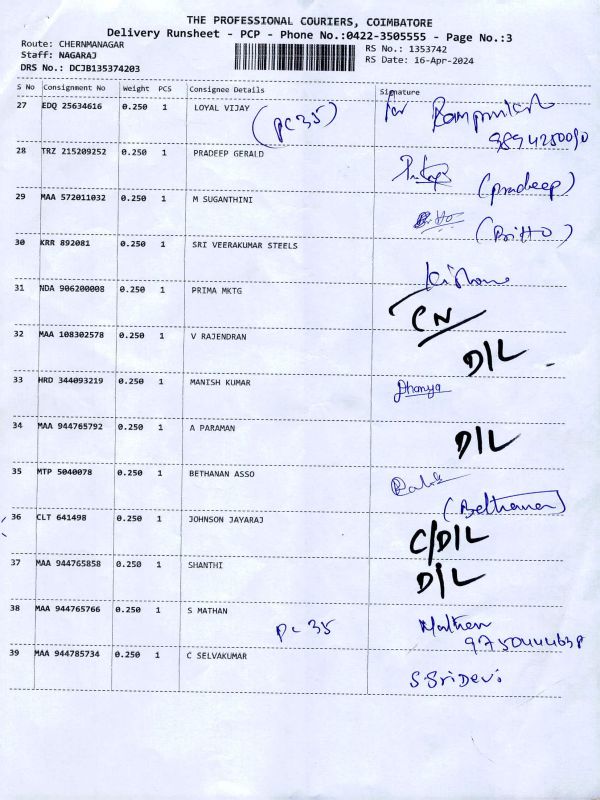 THE PROFESSIONAL COURIERS, COIMBATORE
Delivery Runsheet - PCP - Phone No.:0422-3505555 - Page No.:3
Route: CHERNMANAGAR RS No.: 1353742
Staff: NAGARAJ RS Date: 16-Apr-2024
DRS No.: DCJB135374203
S No Consignment No Weight PCS Consignee Details Signature
27 EDQ 25634616 0.250 1 LOYAL VIJAY for
(PC 35)
28 TRZ 215209252 0.250 1 PRADEEP GERALD
(pradeep)
29 MAA 572011032 0.250 1 M SUGANTHINI
(Britto)
30 KRR 892081 0.250 1 SRI VEERAKUMAR STEELS
31 NDA 906200008 0.250 1 PRIMA MKTG
CN
32 MAA 108302578 0.250 1 V RAJENDRAN
D/L
33 HRD 344093219 0.250 1 MANISH KUMAR Dhanya
34 MAA 944765792 0.250 1 A PARAMAN
D/L
35 MTP 5040078 0.250 1 BETHANAN ASSO
36 CLT 641498 0.250 1 JOHNSON JAYARAJ
C/D/L
37 MAA 944765858 0.250 1 SHANTHI
D/L
38 MAA 944765766 0.250 1 S MATHAN
PC 35 Mathan
39 MAA 944785734 0.250 1 C SELVAKUMAR
S Sridevi